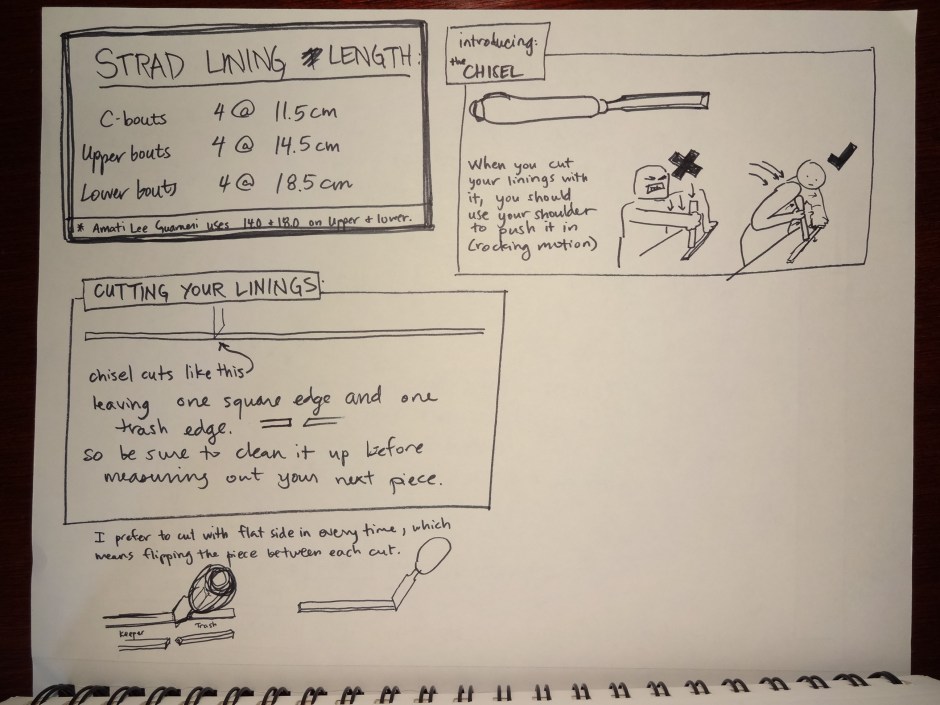 STRAD LINING LENGTH:
C-bouts 4 @ 11.5cm
Upper bouts 4 @ 14.5cm
Lower bouts 4 @ 18.5cm
* Amati Lee Guarneri uses 14.0 + 18.0 on Upper + lower.
introducing:
the CHISEL
When you cut
your linings with
it, you should
use your shoulder
to push it in
(rocking motion)
CUTTING YOUR LININGS:
chisel cuts like this
leaving one square edge and one
trash edge.
so be sure to clean it up before
measuring out your next piece.
I prefer to cut with flat side in every time, which
means flipping the piece between each cut.
Keeper
Trash